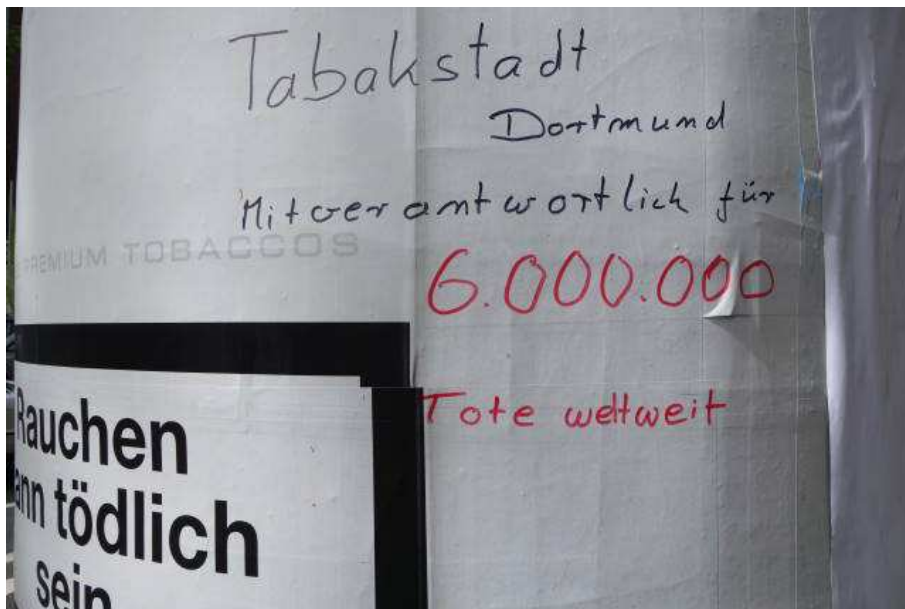 Tabakstadt
Dortmund
Mitverantwortlich für
PREMIUM TOBACCOS
6.000.000
Tote weltweit
Rauchen
ann tödlich
sein